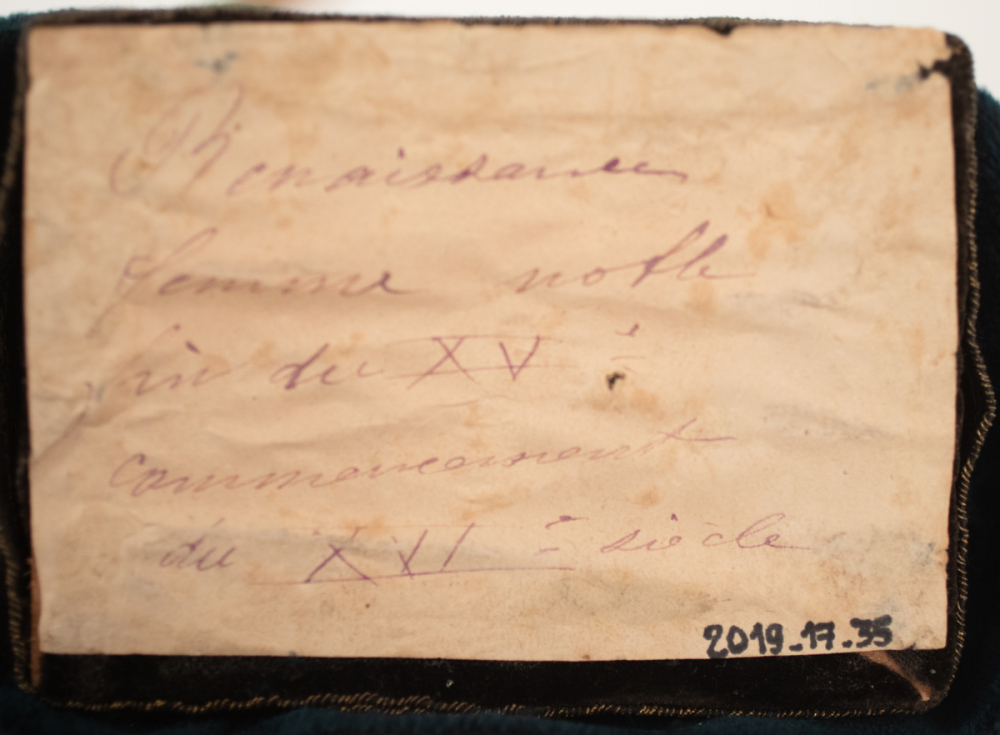 Renaissance
femme noble
fin du XV è
commencement
du XVI è siècle
2019-17-35